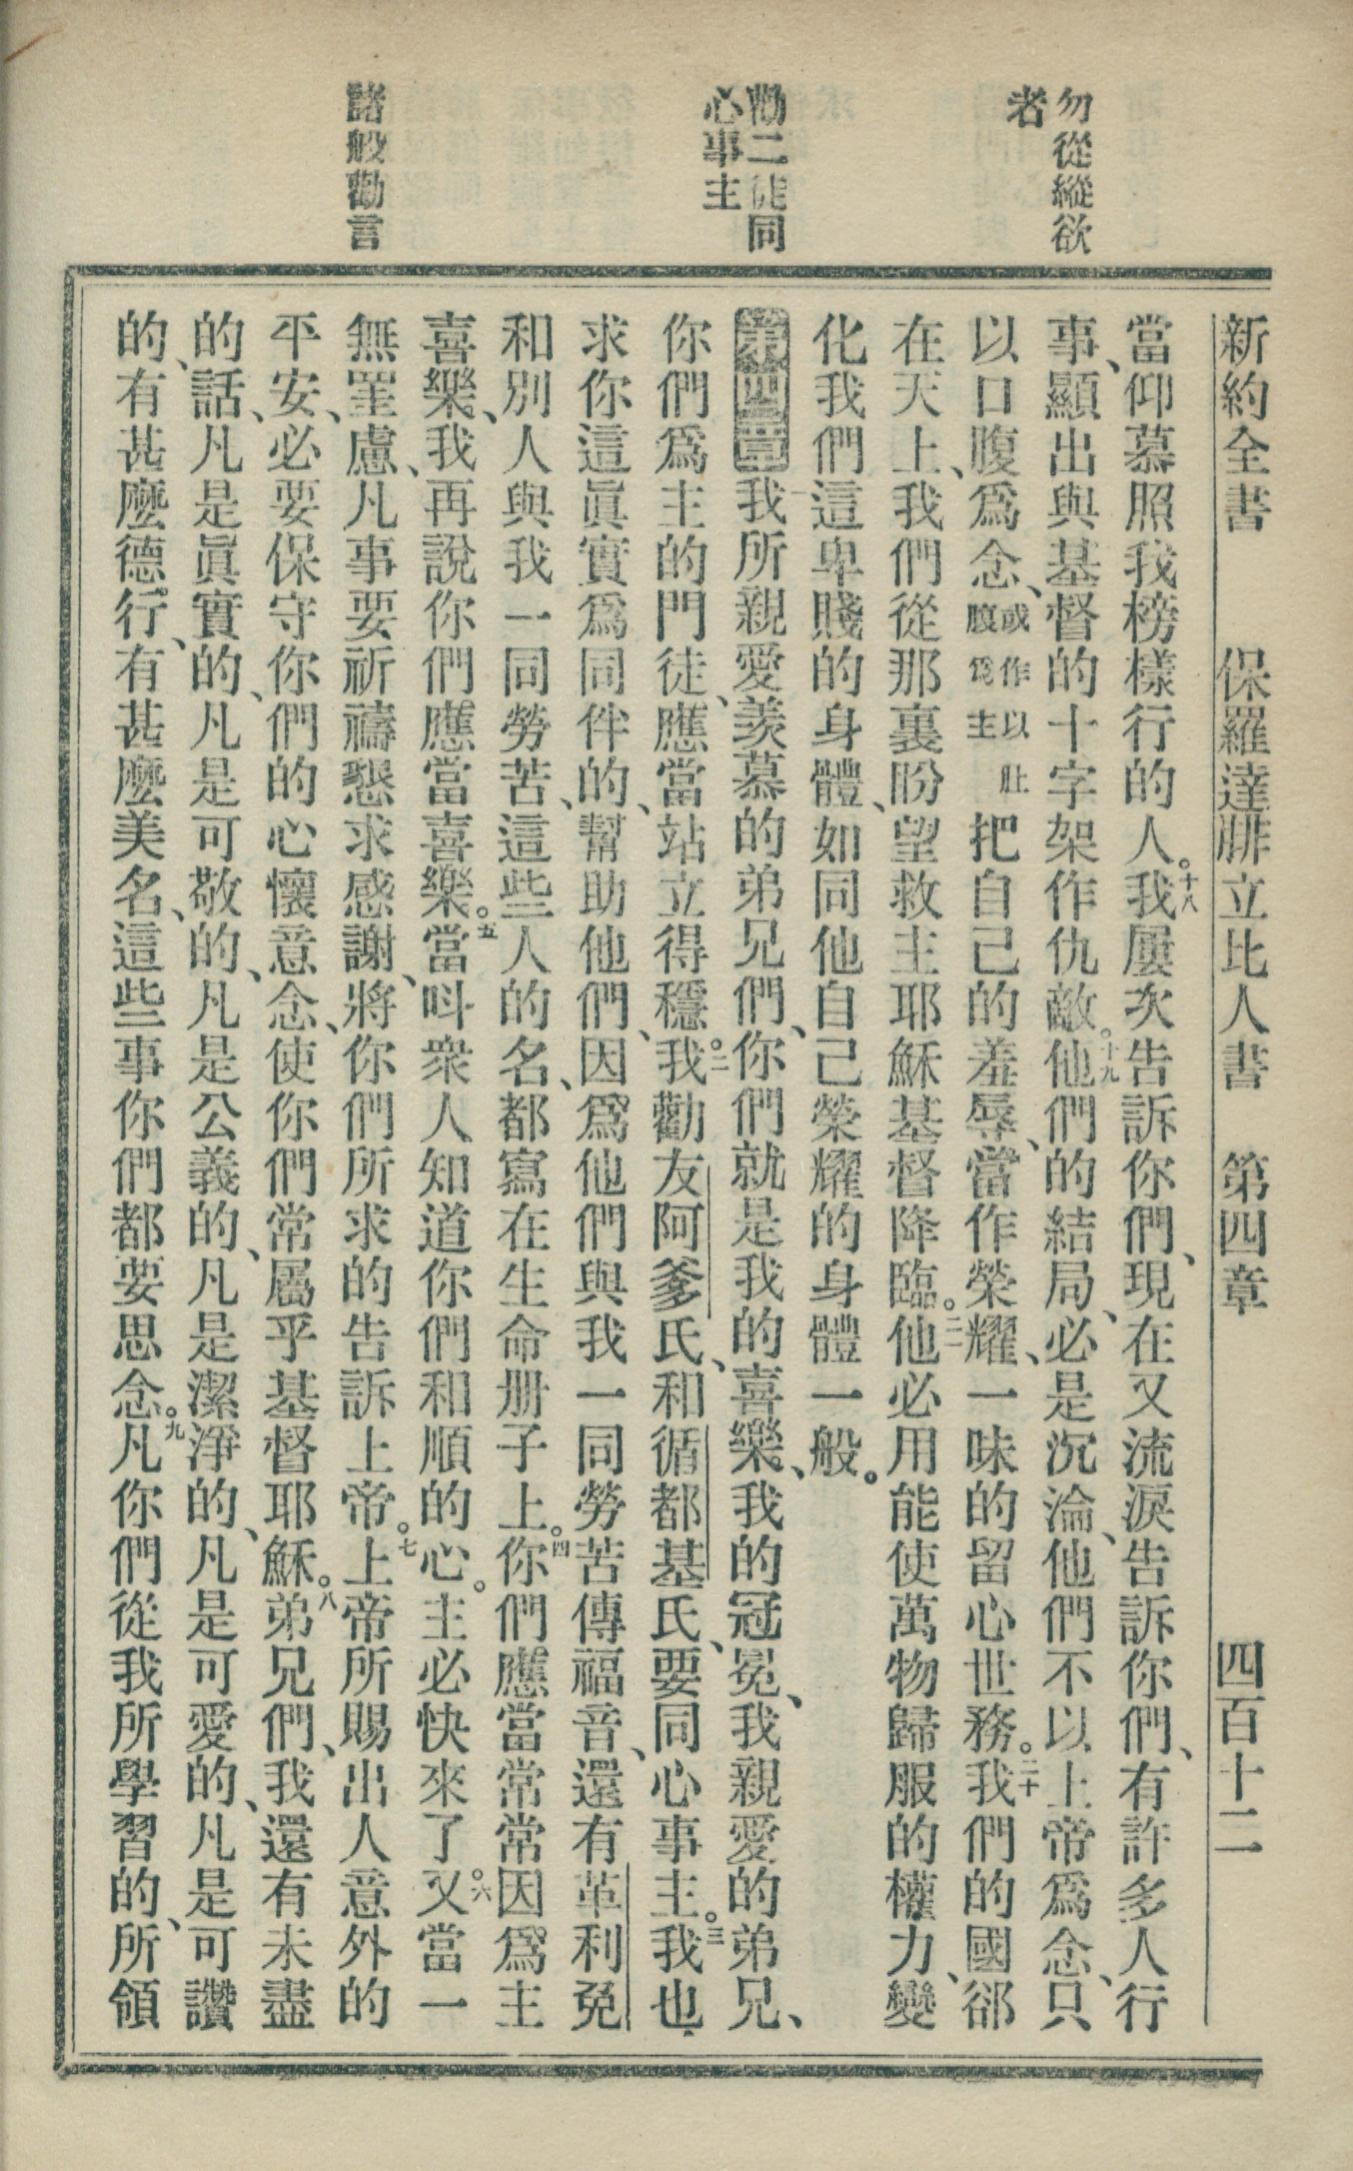 勿從縱欲
者
勸二徒同
心事主
諸般勸言
新約全書 保羅達腓立比人書 第四章 四百十二
當仰慕照我榜樣行的人。十八我屢次告訴你們、現在又流淚告訴你們、有許多人行
事、顯出與基督的十字架作仇敵。十九他們的結局、必是沉淪、他們不以上帝爲念、只
以口腹爲念、或作以肚腹爲主把自己的羞辱、當作榮耀、一味的留心世務。二十我們的國郤
在天上、我們從那裏盼望救主耶穌基督降臨。二一他必用能使萬物歸服的權力、變
化我們這卑賤的身體、如同他自己榮耀的身體一般。
第四章我所親愛羨慕的弟兄們、你們就是我的喜樂、我的冠冕、我親愛的弟兄、
你們爲主的門徒、應當站立得穩。二我勸友阿爹氏、和循都基氏、要同心事主。三我也
求你這眞實爲同伴的、幫助他們、因爲他們與我一同勞苦傳福音、還有革利免
和別人與我一同勞苦、這些人的名、都寫在生命册子上。四你們應當常常因爲主
喜樂、我再說你們應當喜樂。五當呌衆人知道你們和順的心。主必快來了。六又當一
無罣慮、凡事要祈禱懇求感謝、將你們所求的告訴上帝。七上帝所賜出人意外的
平安、必要保守你們的心懷意念、使你們常屬乎基督耶穌。八弟兄們、我還有未盡
的話、凡是眞實的、凡是可敬的、凡是公義的、凡是潔淨的、凡是可愛的、凡是可讚
的、有甚麼德行、有甚麼美名、這些事你們都要思念。九凡你們從我所學習的、所領